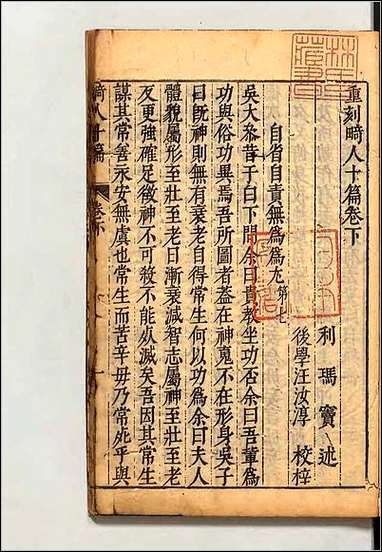 重刻畸人十篇卷下
利瑪竇述
後學汪汝淳校梓
自省自責無為為尤第七
吳大參昔于白下問余曰貴教坐功否余曰吾輩為
功與俗功異焉吾所圖者蓋在神䰟不在形身吳子
曰旣神則無有衰老自得常生何以功為余曰夫人
體貌屬形至壯至老日漸衰減智志屬神至壯至老
反更強確足徵神不可殺不能㷊滅矣吾因其常生
謀其常善永安無虞也常生而苦辛毋乃常死乎與
畸人十篇 卷下 一